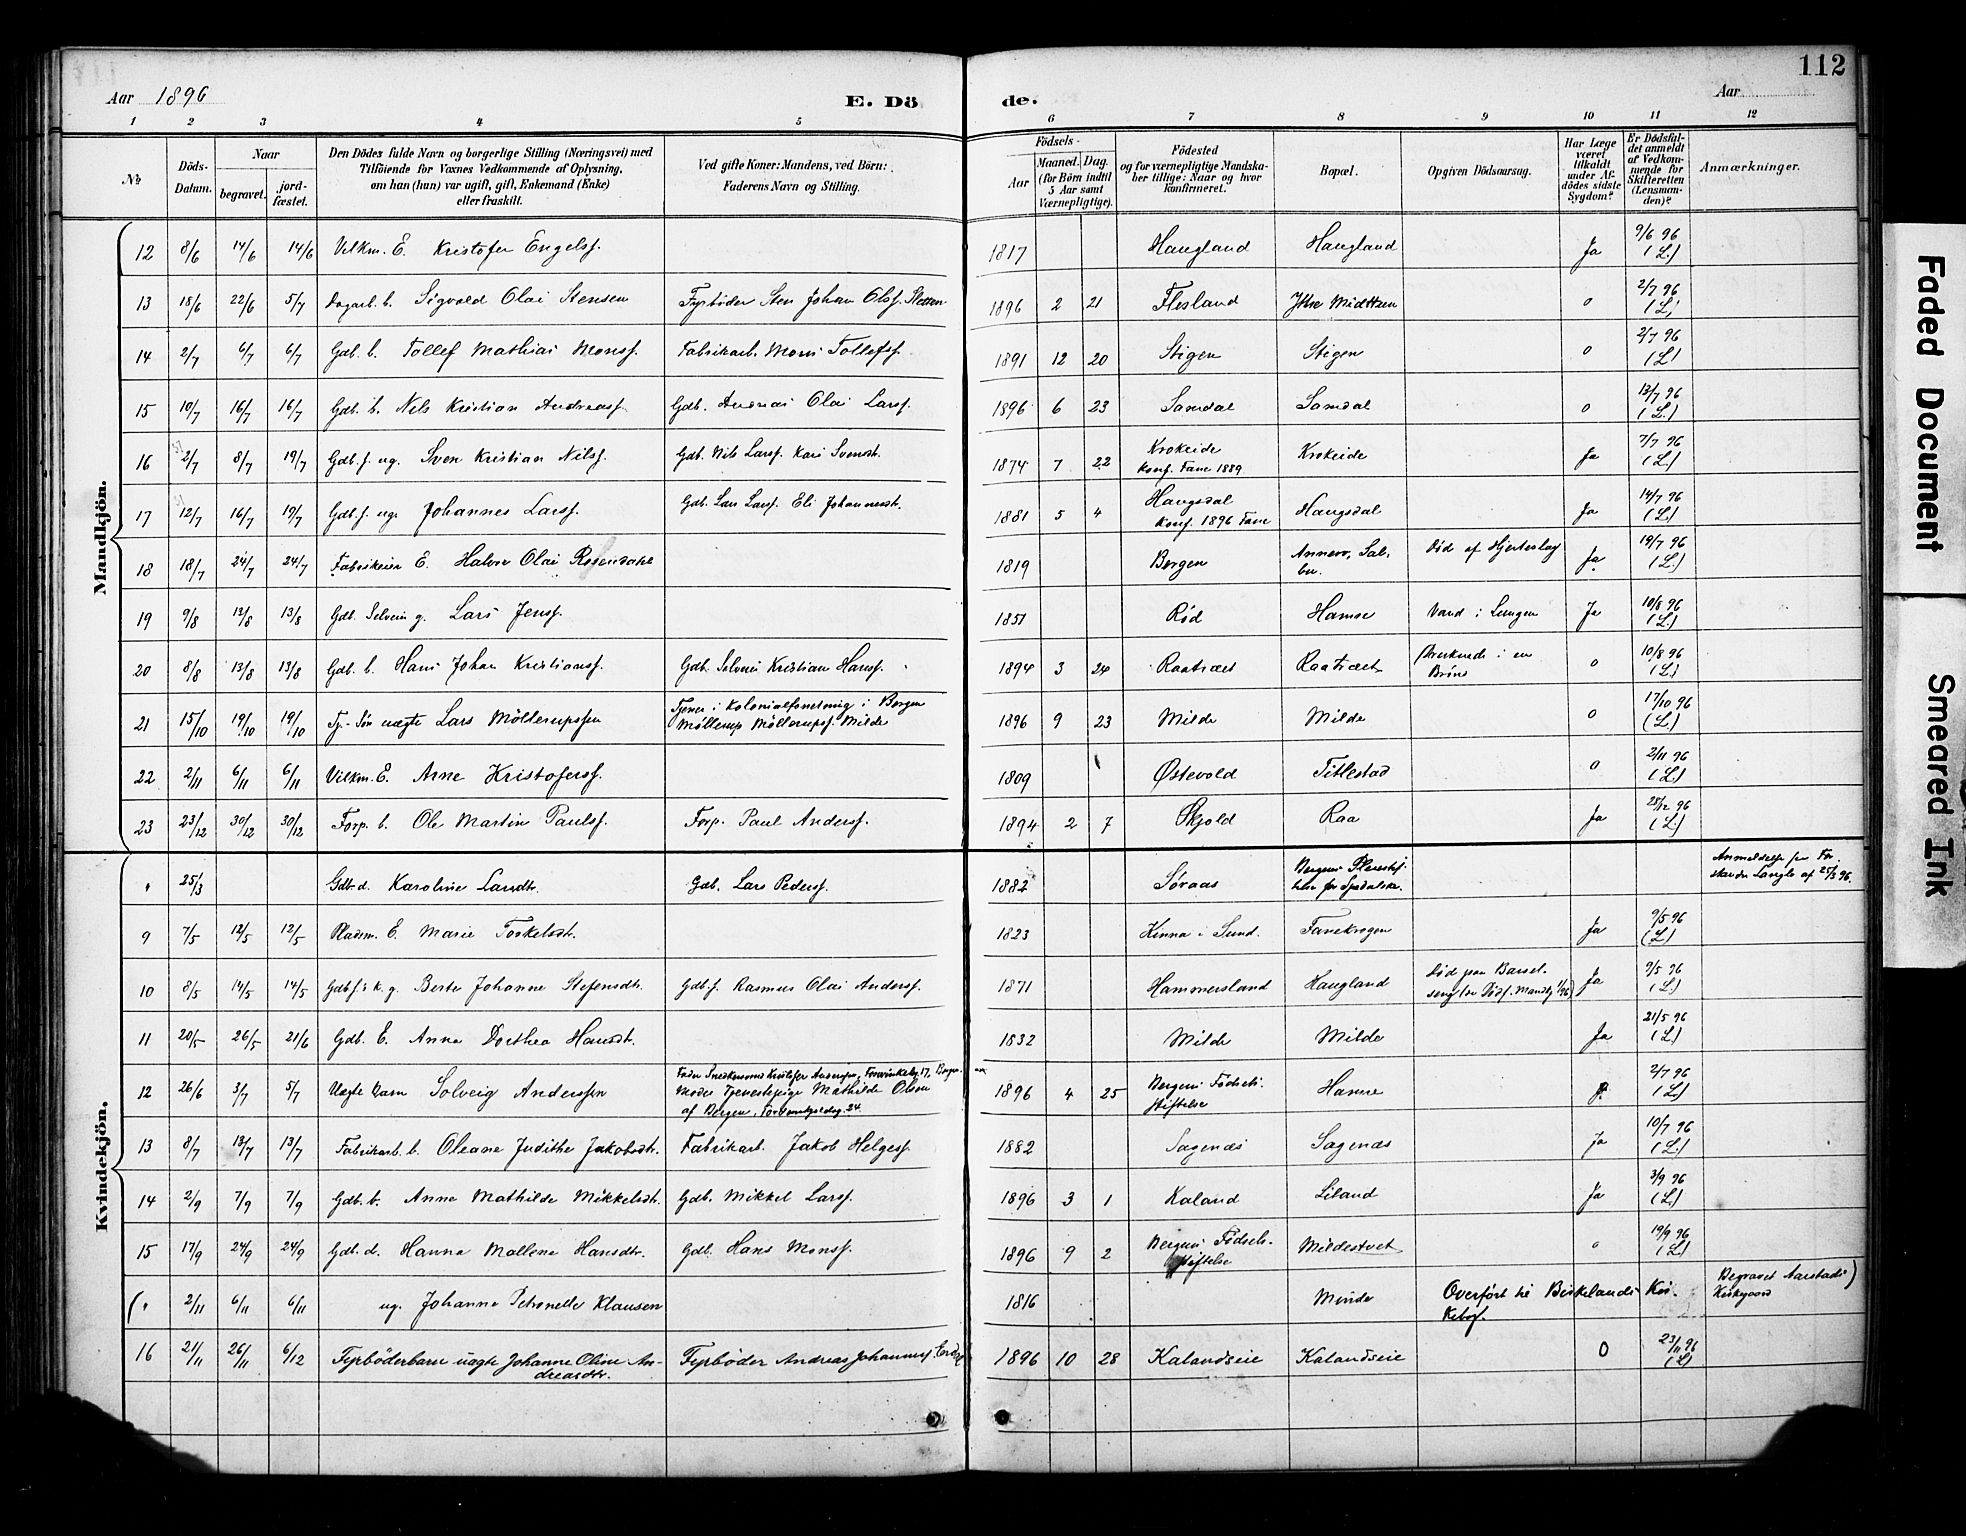 112
Aar 1896 E. Dö de. Aar
1 2 3 4 5 6 7 8 9 10 11 12
No
Döds-Datum.
Naar
begravet.
jordfæstet.
Den Dödes fulde Navn og borgerlige Stilling (Næringsvei) med
Tilföiende for Voxnes Vedkommende af Oplysning,
om han (hun) var ugift, gift, Enkemand (Enke)
eller fraskilt.
Ved gifte Koner: Mandens, ved Börn:
Faderens Navn og Stilling.
Födsels-
Aar
Maaned. Dag.
(for Börn indtil
5 Aar samt
Værnepligtige).
Födested
og for værnepligtige Mandska-
ber tillige: Naar og hvor
konfirmeret.
Bopæl.
Opgiven Dödsaarsag.
Har Læge
været
tilkaldt
under Af-
dödes sidste
Sygdom?
Er Dödsfal-
det anmeldt
af Vedkom-
mende for
Skifteretten
(Lensman-
den)?
Anmærkninger.
Mandkjön.
12 8/6 14/6 14/6 Vilkm. E. Kristofer Engelsf. 1817 Haugland Haugland Ja 9/6 96 (L.)
13 18/6 22/6 5/7 Dagarb. b. Sigvald Olai Stensen Fyrbøder Sten Johan Olsf. 1896 2 21 Flesland Ytre 2/7 96 (L)
14 2/7 6/7 6/7 Gdb. b. Tollef Mathias Monsf. Fabrikarb. Mons Tollefsf. 1891 12 20 Stigen Stigen o 2/7 96 (L)
15 10/7 16/7 16/7 Gdb. b. Nils Kristian Andreasf. Gdb. Andreas Olai Larsf. 1896 6 23 Samdal Samdal o 13/7 96 (L.)
16 2/7 8/7 19/7 Gdb. f. ug. Sven Kristian Nilsf. Gdb. Nils Larsf. Kari Svensdt. 1874 7 22 Krokeide Konf. Fane 1889 Krokeide Ja 7/7 96 (L.)
17 12/7 16/7 19/7 Gdb. f. ug. Johannes Larsf. Gdb. Lars Larsf. Eli Johannesdt. 1881 5 4 Haugsdal Konf. 1896 Fane Haugsdal Ja 14/7 96 (L.)
18 18/7 24/7 24/7 Fabrikeier E. Halvor Olai Rosendahl 1819 Bergen Død af Hjerteslag Ja 19/7 96 (L.)
19 9/8 13/8 13/8 Gdb. Selveier g. Lars Jensf. 1851 Rød Hamre Vand i Lungen Ja 10/8 96 (L.)
20 8/8 13/8 13/8 Gdb. b. Hans Johan Kristiansf. Gdb. Selveier Kristian Hansf. 1894 3 24 Raatræet Raatræet Druknede i en Brønd o 10/8 96 (L.)
21 15/10 19/10 19/10 Tj. Søn uægte Lars Möllerupssen Tjener i Kolonialforretning i Bergen
Møllerup Møllerupsf. Milde 1896 9 23 Milde Milde o 17/10 96 (L.)
22 2/11 6/11 6/11 Vilkm. E. Arne Kristofersf. 1809 Østevold Titlestad o 2/11 96 (L.)
23 23/12 30/12 30/12 Forp. b. Ole Martin Paulsf. Forp. Paul Andersf. 1894 2 7 Skjold Raa Ja 25/12 96 (L.)
Kvindekjön.
" 25/3 Gdb. d. Karoline Larsdtr. Gdb. Lars Pedersf. 1882 Søraas Bergens Pleiestif-
telse for Spedalske. Anmeldelse fra af 27/3 96.
9 7/5 12/5 12/5 Pladsm. E. Marie Torkelsdt. 1823 Kinna i Sund. Fanekrogen Ja 9/5 96 (L)
10 8/5 14/5 14/5 Gdbf.s k. g. Berte Johanne Stefensdtr. Gdb. f. Rasmus Olai Andersf. 1871 Hammersland Haugland Død paa Barsel-
seng Ja 9/5 96 (L.)
11 20/5 26/5 21/6 Gdb. E. Anna Dorthea Hansdt. 1832 Milde Milde Ja 21/5 96 (L)
12 26/6 3/7 5/7 Uægte Barn Solveig Anderssen Fader Snedkersvend Kristofer
Moder Tjenestepige Mathilde Olsen
af Bergen, 24. 1896 4 25 Bergens Fødsels-
stiftelse Hamre 2/7 96 (L.)
13 8/7 13/7 13/7 Fabrikarb. b. Oleane Judithe Jakobsdt. Fabrikarb. Jakob Helgesf. 1882 Sagenæs Sagenæs Ja 10/7 96 (L.)
14 2/9 7/9 7/9 Gdb. b. Anna Mathilde Mikkelsdt. Gdb. Mikkel Larsf. 1896 3 1 Kaland Liland Ja 3/9 96 (L.)
15 17/9 24/9 24/9 Gdb. d. Hanna Mallene Hansdtr. Gdb. Hans Monsf. 1896 9 2 Bergens Fødsels-
stiftelse Mildestvet o 19/9 96 (L)
(" 2/11 6/11 6/11 ug. Johanne Petronelle Klausen 1816 Minde Overført til Birkelands Kir-
kebog. Begravet Aarstads
Kirkegaard)
16 21/11 26/11 6/12 Fyrbøderbarn uægte Johanne Oline An-
dreasdtr. Fyrbøder Andreas Johannesf. 1896 10 28 Kalandseie Kalandseie O 23/11 96 (L)
Faded Document
Smeared Ink